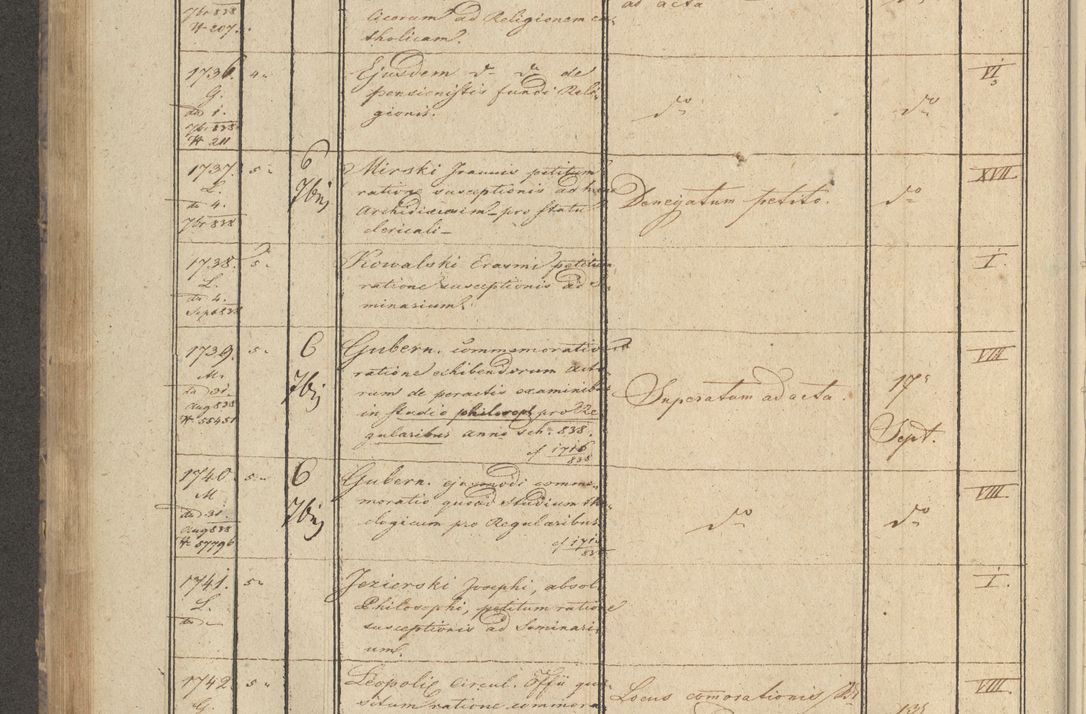 7br 838
N 207.
licorum ad Religionem ca-
tholicam.
ad acta
1736. 4.
G.
dto 1.
7br 838
N 211
Ejusdem dto dto de
pensionistis fundi Reli-
gionis.
dto
dto
VI
3
1737. 5.
L.
dto 4.
7br 838
6
7bris
Mirski Joannis petitum
ratione susceptionis ad hanc
Archidiaecesim pro statu
clericali
Denegatum petito.
dto
XVII
1738. 5.
L.
dto 4.
Sept 838
Kowalski Erasmi petitum
ratione susceptionis ad Se-
minarium.
I.
1739. 5.
M.
dto 31.
Aug 838
N 55451
6
7bris
Gubern. commemorativum
ratione exhibendorum acto-
rum de peractis examinibus
in studio philosoph pro Re-
gularibus anno sch. 838.
cf 1716
838
Superatum ad acta
17
Sept.
VIII
1740. 5.
M
dto 31.
Aug 838
N 57796
6
7bris
Gubern. ejusmodi comme-
moratio quoad studium the-
ologicum pro Regularibus
cf 171
838
dto
dto
VIII.
1741. 5.
L.
dto
Jezierski Josephi, absol.
Philosophi, petitum ratione
susceptionis ad Seminari-
um.
I.
1742. 5.
G.
Leopolie circul. Offii qui-
situm ratione commora
Locus comorationis
13
VIII.